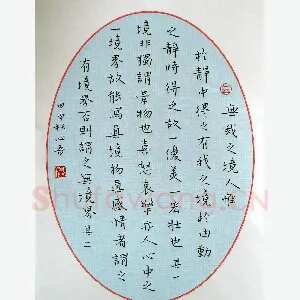 無我之境人惟
於靜中得之有我之境於由動
之靜時得之故一優美一宏壯也其一
境非獨謂景物也喜怒哀樂亦人心中之
一境界故能寫真境物真感情者謂之
有境界否則謂之無境界其二
Shufawang.cn